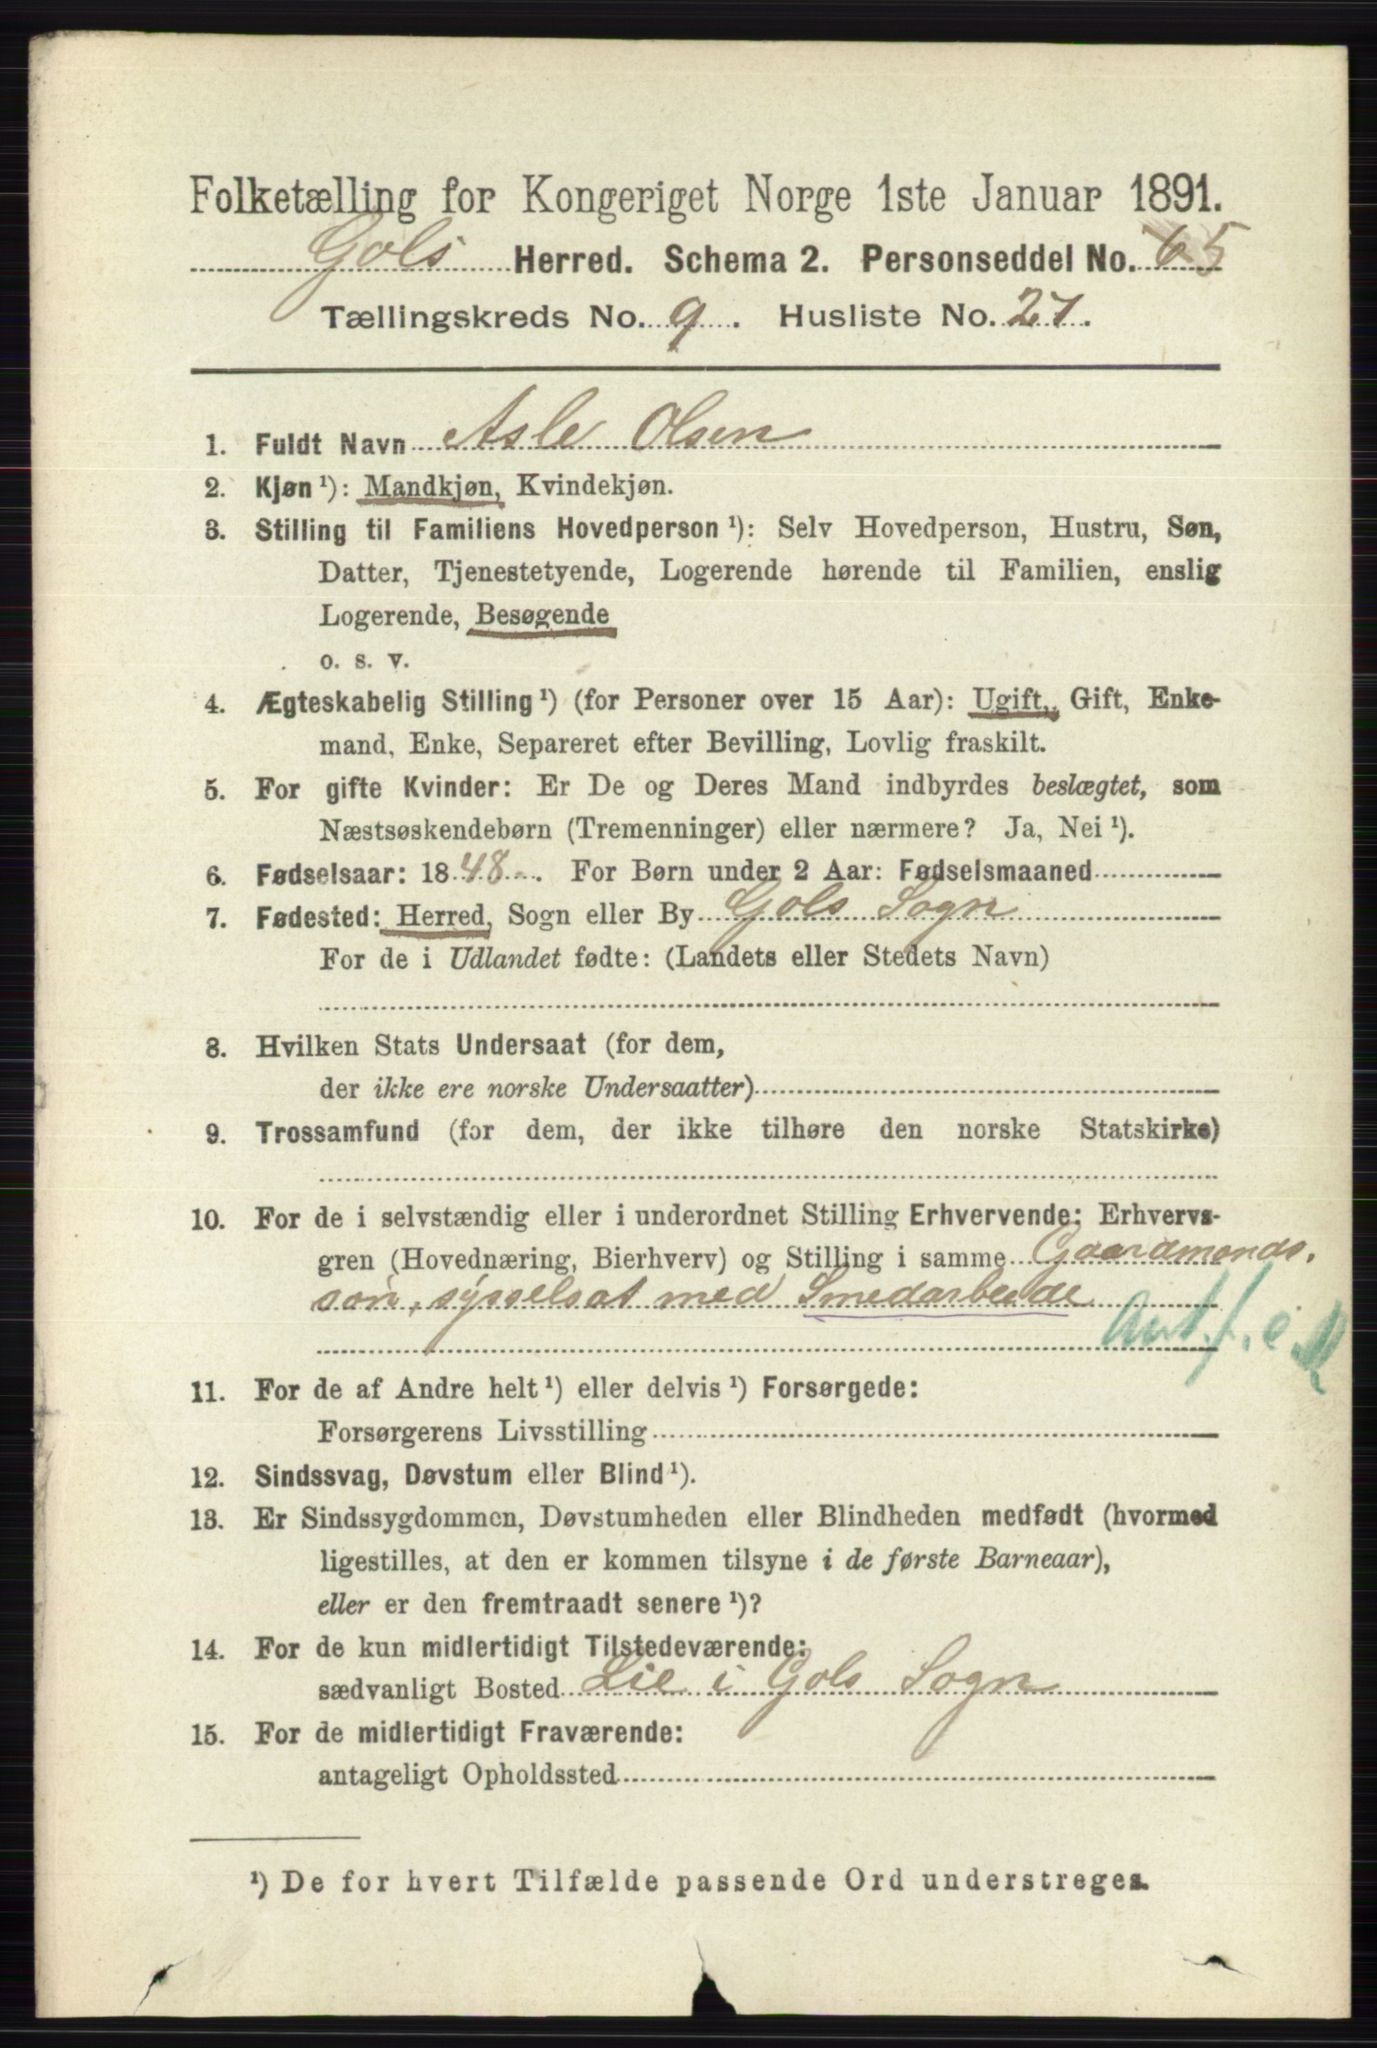 Folketælling for Kongeriget Norge 1ste Januar 1891.
Gols Herred. Schema 2. Personseddel No. 65
Tællingskreds No. 9. Husliste No. 27.
1. Fuldt Navn Asle Olsen
2. Kjøn ¹): Mandkjøn, Kvindekjøn.
3. Stilling til Familiens Hovedperson ¹): Selv Hovedperson, Hustru, Søn,
Datter, Tjenestetyende, Logerende hørende til Familien, enslig
Logerende, Besøgende
o. s. v.
4. Ægteskabelig Stilling ¹) (for Personer over 15 Aar): Ugift, Gift, Enke-
mand, Enke, Separeret efter Bevilling, Lovlig fraskilt.
5. For gifte Kvinder: Er De og Deres Mand indbyrdes beslægtet, som
Næstsøskendebørn (Tremenninger) eller nærmere? Ja, Nei ¹).
6. Fødselsaar: 1848. For Børn under 2 Aar: Fødselsmaaned
7. Fødested: Herred, Sogn eller By Gols Sogn
For de i Udlandet fødte: (Landets eller Stedets Navn)
8. Hvilken Stats Undersaat (for dem,
der ikke ere norske Undersaatter)
9. Trossamfund (for dem, der ikke tilhøre den norske Statskirke)
10. For de i selvstændig eller i underordnet Stilling Erhvervende: Erhvervs-
gren (Hovednæring, Bierhverv) og Stilling i samme Gaardmands.
søn, sysselsat med Smedarbeide
11. For de af Andre helt ¹) eller delvis ¹) Forsørgede:
Forsørgerens Livsstilling
12. Sindssvag, Døvstum eller Blind ¹).
13. Er Sindssygdommen, Døvstumheden eller Blindheden medfødt (hvormed
ligestilles, at den er kommen tilsyne i de første Barneaar),
eller er den fremtraadt senere ¹)?
14. For de kun midlertidigt Tilstedeværende:
sædvanligt Bosted Lie i Gols Sogn
15. For de midlertidigt Fraværende:
antageligt Opholdssted
¹) De for hvert Tilfælde passende Ord understreges.